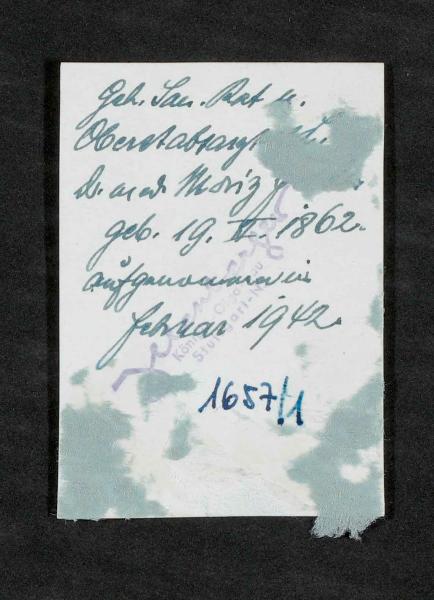 Geh. San. Rat u.
Oberstabsarzt
Dr. med. Moriz
geb. 19. V. 1862.
aufgenommen im
Februar 1942.
König
Stuttgart-N
1657/1